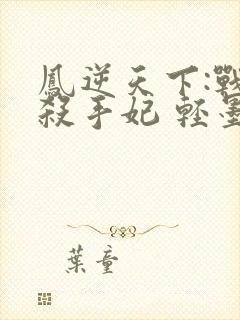 鳳逆天下:戰
殺手妃 輕墨
葉童